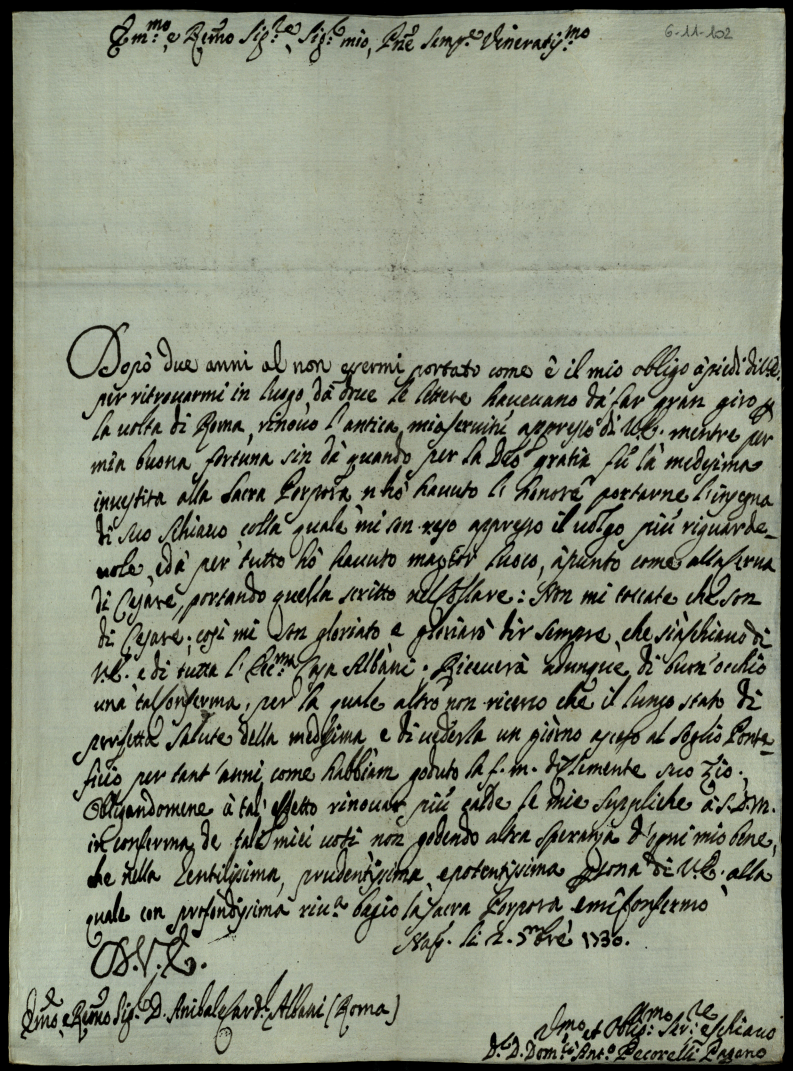 Em.mo e Rẽmo Sig.re Sig.r mio, Pn̄e Semp.e Veneratis.mo
6-11-102
Dopò due anni al non essermi portato come è il mio obligo à piedi di V.E.
per ritrovarmi in luogo, da dove le lettere havevano da far gran giro p
la volta di Roma, rinovo l'antica mia servitù appresso di V.E. mentre per
mia buona fortuna sin da quando per la Dio gratia fù la medesima
investita alla Sacra Porpora n'hò havuto l'honore portarne l'insegna
di suo schiavo colla quale mi son reso appresso il volgo più riguarde-
vole, ed à per tutto hò havuto maggior luoco, àpunto come alla serva
di Cesare, portando quella scritto nel Collare: Non mi toccate che son
di Cesare; così mi son gloriato e gloriarò dir sempre, che sia schiavo di
V.E. e di tutta l'Ecc.ma Casa Albani. Riceverà adunque di buon'occhio
una tal conferma, per la quale altro non ricerco che il lungo stato di
perfetta salute della medesima e di vederla un giorno asceso al Soglio Ponte-
ficio per tant'anni, come habbiam goduto la f. m. di Clemente suo Zio;
Obligandomene à tal'effetto rinovar più calde le mie suppliche à S.D.M.
in conferma de tali miei voti non godendo altra speranza d'ogni mio bene,
che nella Gentilissima, prudentissima e potentissima persona di V.E. alla
quale con profondissima riv.a bagio la Sacra Porpora e mi confermo
Nap. li 2. 9mbre 1730.
D.V.E.
Em̃o e Rẽmo Sig.r D. Anibale Card.l Albani (Roma)
Um̃o et Oblig.mo Ser.re e Schiavo
D.r D. Dom.co Ant.o Pecorelli Pagano